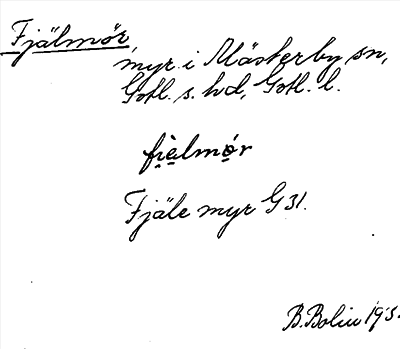 Fjälmör,
myr i Mästerby sn,
Gotl. s. hd, Gotl. l.
fi̯ȩlmǫ́r
Fjäle myr G 31.
B. Bolin